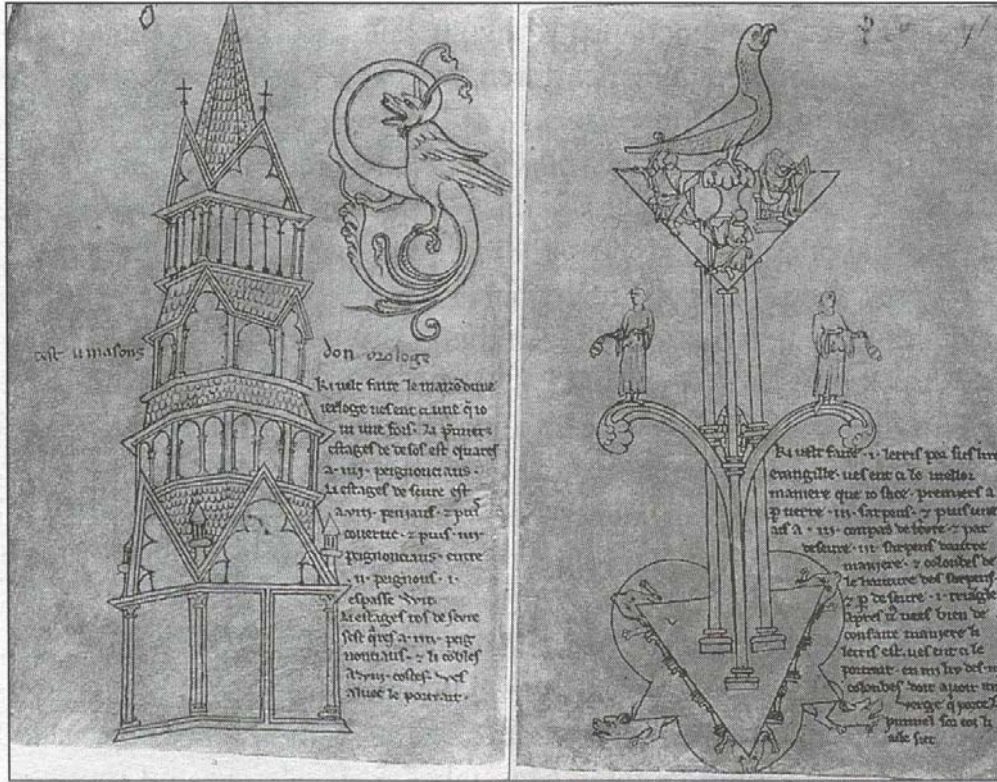 cest li masons don orologe
Ki velt faire le maizo dune
ierloge ves ent ci une q io
vi une fois. li pmiers
estages de desos est quares
a .iiii. peignonciaus.
li estages de seure est
a viii. peniaus. 7 puis
covertic. 7 puis .iiii.
peignonciaus. entre
.ii. peignons .i.
espasse vuit
Li estages tos de sevre
sest qres a .iiii. peig
nonciaus. 7 li cobles
a viii. costes. ves
aluec le portrait.
Ki velt faire .i. letris por sus lire
evangille. ves ent ci le mellor
maniere que io sace. premiers a
p tierre .iii. sarpens. 7 puis une
ais a .iii. conpas de sevre. 7 par
deseure .iii. sarpens dautre
maniere. 7 colonbes de
le hauture des sarpens
7 p de seure .i. triangle
apres vos vees bien de
confaite maniere li
letris est. ves ent ci le
portrait. en mi liv des .iii.
colonbes doit avoir une
verge q porte le
pumiel sor coi li
aile siet